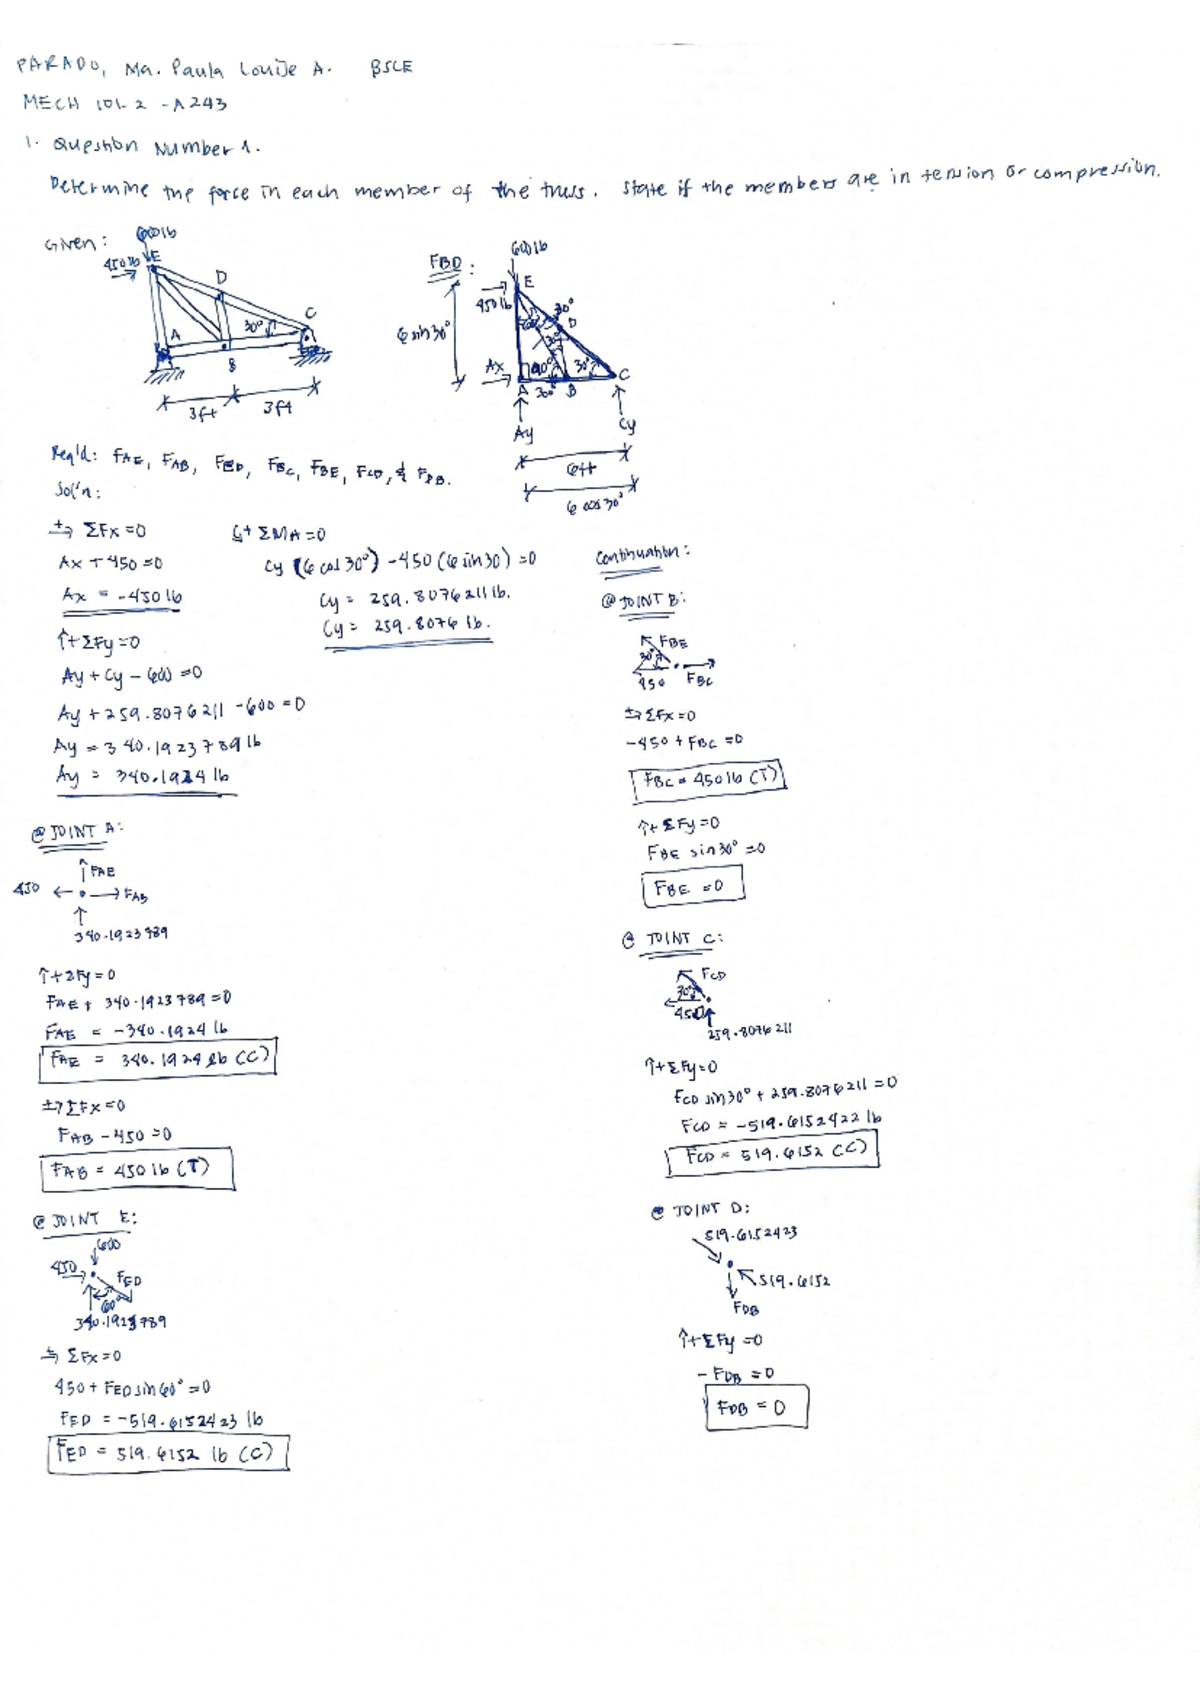 PARADO, Ma. Paula Louise A. BSCE
MECH 101-2 - A243
1. Question Number 1.
Determine the force in each member of the truss. State if the members are in tension or compression.
Given:
600 lb
450 lb
E
D
C
A
B
30°
3ft
3ft
FBD:
600 lb
450 lb
E
30°
D
6 sin 30°
30°
Ax
A
B
C
30°
30°
Ay
Cy
6ft
6 cos 30°
Req'd: FAE, FAB, FED, FBC, FBE, FCD, & FDB.
Sol'n:
ΣFx = 0
Ax + 450 = 0
Ax = -450 lb
↑+ ΣFy = 0
Ay + Cy - 600 = 0
Ay + 259.8076211 - 600 = 0
Ay = 340.1923789 lb
Ay = 340.1924 lb
ΣMA = 0
Cy (6 cos 30°) - 450 (6 sin 30) = 0
Cy = 259.8076211 lb.
Cy = 259.8076 lb.
@ JOINT A:
FAE
450 FAB
340.1923789
↑+ ΣFy = 0
FAE + 340.1923789 = 0
FAE = -340.1924 lb
FAE = 340.1924 lb (C)
ΣFx = 0
FAB - 450 = 0
FAB = 450 lb (T)
@ JOINT E:
600
450
FED
60°
340.1923789
ΣFx = 0
450 + FED sin 60° = 0
FED = -519.6152423 lb
FED = 519.6152 lb (C)
Continuation:
@ JOINT B:
FBE
30°
450 FBC
ΣFx = 0
-450 + FBC = 0
FBC = 450 lb (T)
↑+ ΣFy = 0
FBE sin 30° = 0
FBE = 0
@ JOINT C:
FCD
30°
450
259.8076211
↑+ ΣFy = 0
FCD sin 30° + 259.8076211 = 0
FCD = -519.6152422 lb
FCD = 519.6152 (C)
@ JOINT D:
519.6152423
519.6152
FDB
↑+ ΣFy = 0
- FDB = 0
FDB = 0